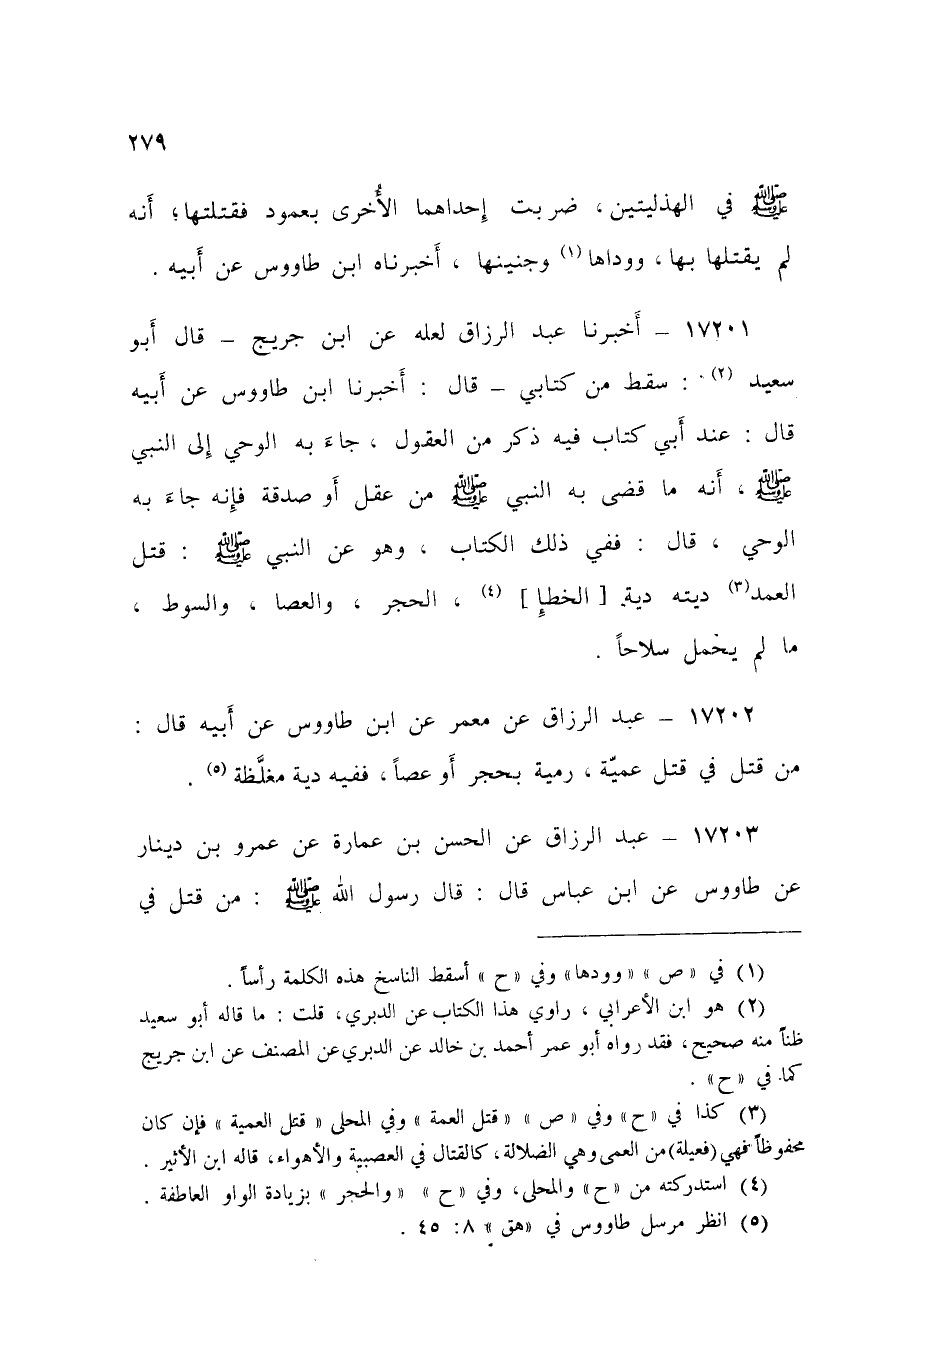 ٢٧٩
ﷺ في الهذليتين ، ضربت إحداهما الأُخرى بعمود فقتلتها ؛ أَنه
لم يقتلها بها ، ووداها (١) وجنينها ، أَخبرناه ابن طاووس عن أَبيه .
١٧٢٠١ – أَخبرنا عبد الرزاق لعله عن ابن جريج – قال أَبو
سعيد (٢) : سقط من كتابي – قال : أَخبرنا ابن طاووس عن أَبيه
قال : عند أَبي كتاب فيه ذكر من العقول ، جاءَ به الوحي إلى النبي
ﷺ ، أَنه ما قضى به النبي ﷺ من عقل أَو صدقة فإنه جاءَ به
الوحي ، قال : ففي ذلك الكتاب ، وهو عن النبي ﷺ : قتل
العمد (٣) ديته دية [ الخطإِ ] (٤) ، الحجر ، والعصا ، والسوط ،
ما لم يحمل سلاحاً .
١٧٢٠٢ – عبد الرزاق عن معمر عن ابن طاووس عن أَبيه قال :
من قتل في قتل عميّة ، رمية بحجر أَو عصاً ، ففيه دية مغلَّظة (٥) .
١٧٢٠٣ – عبد الرزاق عن الحسن بن عمارة عن عمرو بن دينار
عن طاووس عن ابن عباس قال : قال رسول الله ﷺ : من قتل في
(١) في « ص » « وودها » وفي « ح » أسقط الناسخ هذه الكلمة رأساً .
(٢) هو ابن الأعرابي ، راوي هذا الكتاب عن الدبري ، قلت : ما قاله أبو سعيد
ظناً منه صحيح ، فقد رواه أبو عمر أحمد بن خالد عن الدبري عن المصنف عن ابن جريج
كما في « ح » .
(٣) كذا في « ح » وفي « ص » « قتل العمة » وفي المحلى « قتل العمية » فإن كان
محفوظاً فهي (فعيلة) من العمى وهي الضلالة ، كالقتال في العصبية والأهواء ، قاله ابن الأثير .
(٤) استدركته من « ح » والمحلى ، وفي « ح » « والحجر » بزيادة الواو العاطفة .
(٥) انظر مرسل طاووس في « هق » ٨ : ٤٥ .